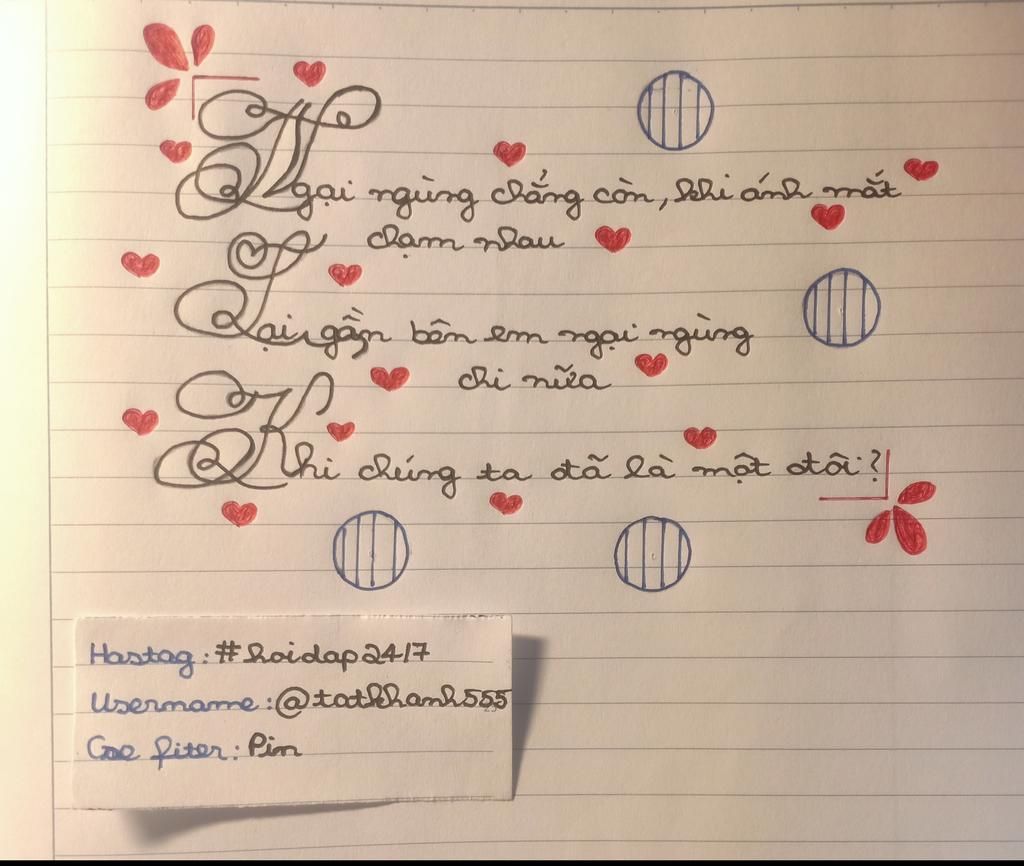 Ngại ngùng chẳng còn, khi ánh mắt
chạm nhau
Lại gần bên em ngại ngùng
chi nữa
Khi chúng ta đã là một đôi?
Hastag: #hoidap247
Username: @tatkhanh555
Coe fiter: Pin